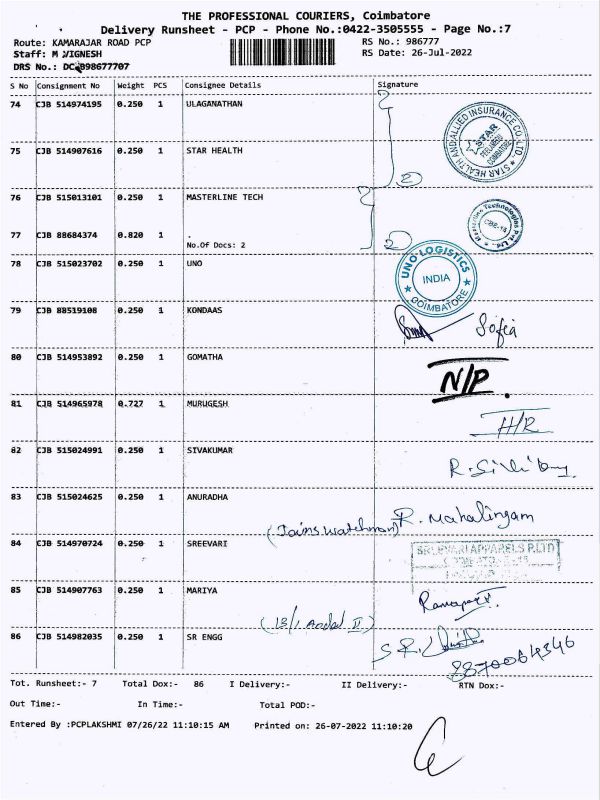 THE PROFESSIONAL COURIERS, Coimbatore
Delivery Runsheet - PCP - Phone No.:0422-3505555 - Page No.:7
Route: KAMARAJAR ROAD PCP RS No.: 986777
Staff: M VIGNESH RS Date: 26-Jul-2022
DRS No.:
S No Consignment No Weight PCS Consignee Details Signature
74 CJB 514974195 0.250 1 ULAGANATHAN
STAR HEALTH AND ALLIED INSURANCE CO. LTD.
STAR
PEELAMEDU
COIMBATORE
75 CJB 514907616 0.250 1 STAR HEALTH
2
76 CJB 515013101 0.250 1 MASTERLINE TECH
Masterline Technologies Pvt Ltd
77 CJB 88684374 0.820 1 .
No.Of Docs: 2
2
78 CJB 515023702 0.250 1 UNO
UNO LOGISTICS
INDIA
COIMBATORE
79 CJB 88519108 0.250 1 KONDAAS
Sofia
80 CJB 514953892 0.250 1 GOMATHA
N/P.
81 CJB 514965978 0.727 1 MURUGESH
H/R
82 CJB 515024991 0.250 1 SIVAKUMAR
83 CJB 515024625 0.250 1 ANURADHA
(Jains watchman) R. Mahalingam
84 CJB 514970724 0.250 1 SREEVARI
SRI EVARI APPARELS P.LTD
85 CJB 514907763 0.250 1 MARIYA
86 CJB 514982035 0.250 1 SR ENGG
Tot. Runsheet:- 7 Total Dox:- 86 I Delivery:- II Delivery:- RTN Dox:-
Out Time:- In Time:- Total POD:-
Entered By :PCPLAKSHMI 07/26/22 11:10:15 AM Printed on: 26-07-2022 11:10:20